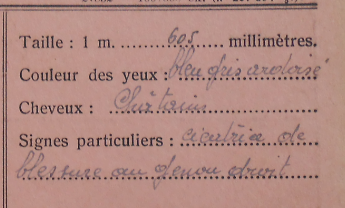 Taille : 1 m. 605 millimètres.
Couleur des yeux : bleu gris ardoisé
Cheveux : Châtain
Signes particuliers : cicatrice de
blessure au genou droit